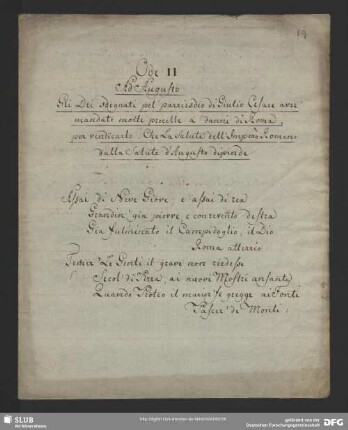 19
Ode II
Ad Augusto
Gli Dei sdegnati pel parricidio di Giulio Cesare aver
mandate molte procelle a danni di Roma,
per vendicarlo: Che la Salute dell'Impero Romano
dalla Salute d'Augusto dipende
Assai di Neve Giove, e assai di rea
Grandin' già piovve e con rovente destra
Già fulminato il Campidoglio, il Dio
Roma atterrio
Temer le Genti il grave non riedesse
Secol di Pirra, ai nuovi Mostri
Quando Proteo il marin' fe' gregge ai Fonti
Pascer de' Monti:
SLUB
Wir führen Wissen.
http://digital.slub-dresden.de/
gefördert von der
Deutschen Forschungsgemeinschaft
DFG